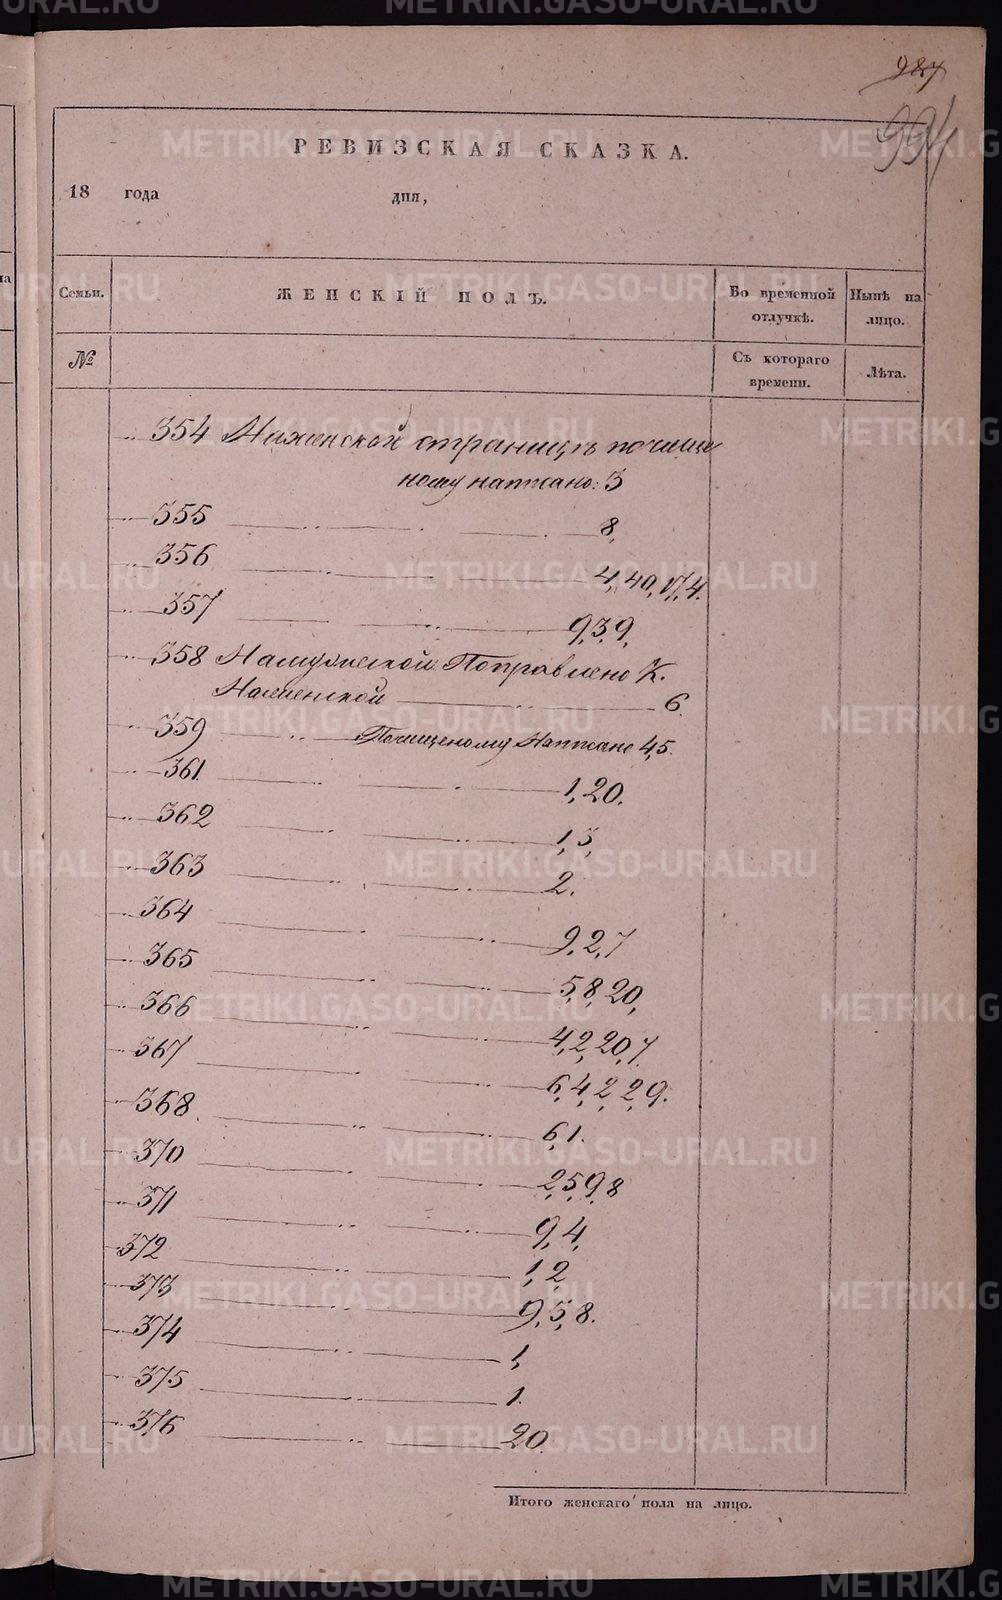 987
994
РЕВИЗСКАЯ СКАЗКА.
18 года дня,
Семьи. ЖЕНСКІЙ ПОЛЪ. Во временной отлучкѣ. Нынѣ на лицо.
№ Съ котораго времени. Лѣта.
354 На женской страницѣ почищен
ному написано: 3
355 8,
356 4, 40, 17, 4.
357 9, 3, 9,
358 На мужеской Поправлено К.
На женской 6.
359 Почищеному Написано 4,5.
361. 1, 20.
362 1, 3,
363 2.
364 9, 2, 7
365 5, 8, 20,
366 4, 2, 20, 7.
367 6, 4, 2, 2, 9.
368. 6, 1.
370 2, 5, 9, 8
371 9, 4,
372 1, 2
373 9, 5, 8.
374 1,
375 1.
376 20.
Итого женскаго пола на лицо.
METRIKI.GASO-URAL.RU